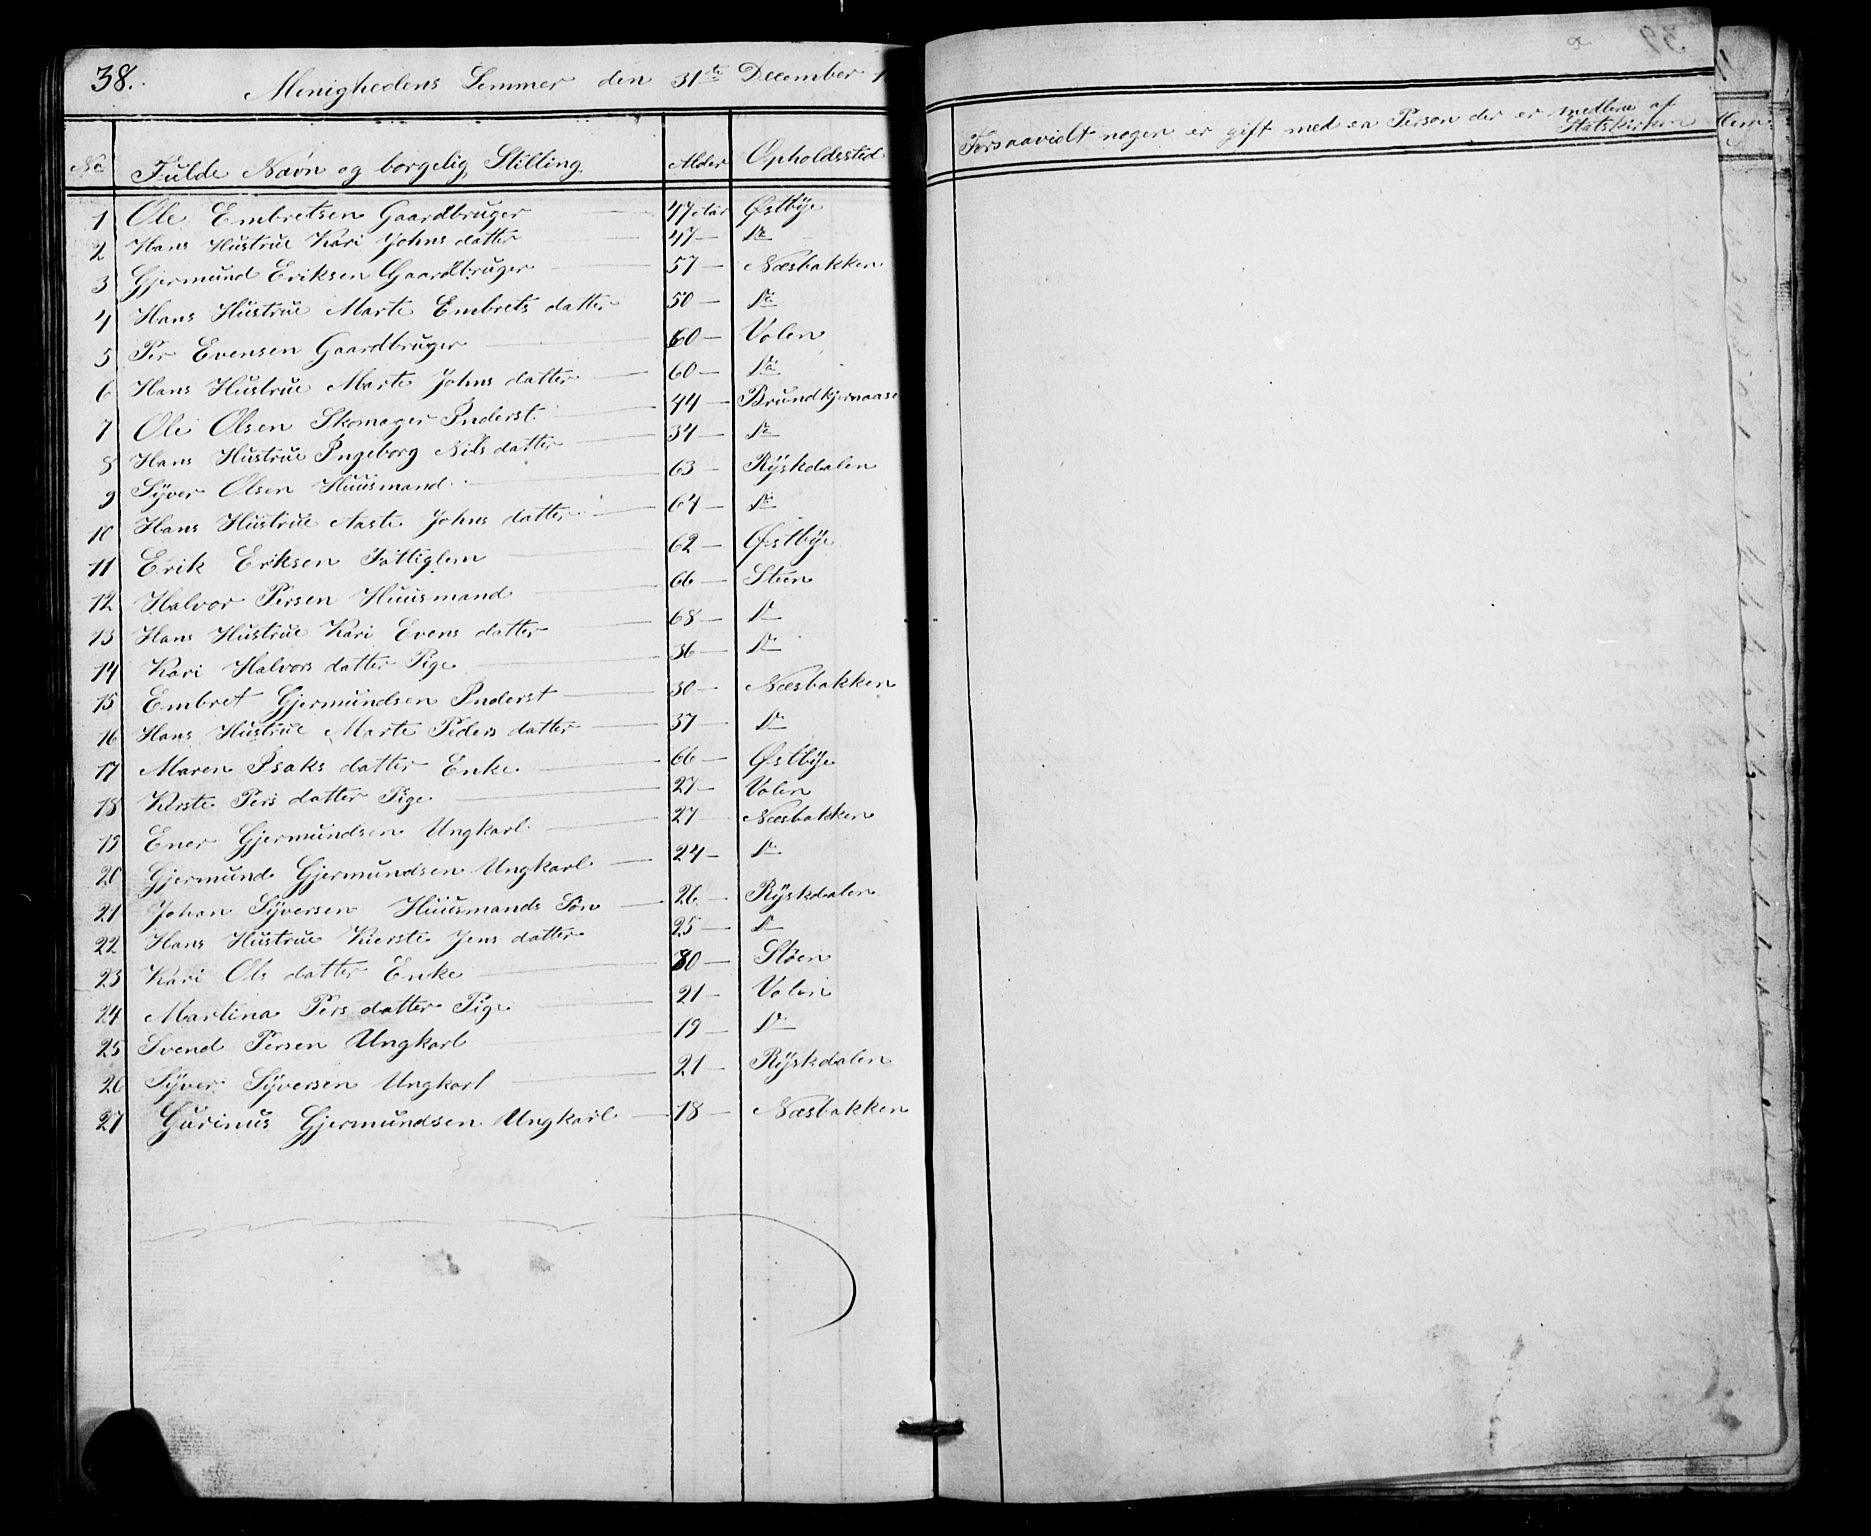 38.
Menighedens Lemmer den 31te December 1
No Fulde Navn og borgelig Stilling. Alder Opholdssted
1 Ole Embretsen Gaardbruger 47 Aar Østbÿe
2 Hans Hustrue Kari Johns datter 47 — Do
3 Gjermund Eriksen Gaardbruger 57 — Næsbakken
4 Hans Hustrue Marte Embrets datter 50 — Do
5 Per Evensen Gaardbruger 60 — Volen
6 Hans Hustrue Marte Johns datter 60 — Do
7 Ole Olsen Skomager Inderst. 44 — Brundkjernaase
8 Hans Hustrue Ingeborg Nils datter 34 — Do
9 Sÿver Olsen Huusmand. 63 — Rÿskdalen
10 Hans Hustrue Aaste Johns datter 64 — Do
11 Erik Eriksen Fattiglem 62 — Østbÿe
12 Halvor Persen Huusmand 66 — Steen
13 Hans Hustrue Kari Evens datter 68 — Do
14 Kari Halvors datter Pige 36 — Do
15 Embret Gjermundsen Inderst 30 — Næsbakken
16 Hans Hustrue Marte Peders datter 37 — Do
17 Maren Isaks datter Enke 66 — Østbÿe
18 Kerste Pers datter Pige 27 — Volen
19 Ener Gjermundsen Ungkarl. 27 — Næsbakken
20 Gjermund Gjermundsen Ungkarl 24 — Do
21 Johan Sÿversen Huusmands Søn 26 — Rÿskdalen
22 Hans Hustrue Kierste Jens datter 25 — Do
23 Kari Ols datter Enke 80 — Støen
24 Martina Pers datter Pige 21 — Volen
25 Svend Persen Ungkarl 19 — Do
26 Sÿver Sÿversen Ungkarl 21 — Rÿskdalen
27 Gurinus Gjermundsen Ungkarl 18 — Næsbakken
39
Forsaavidt nogen er gift med en Person der er medlem af
Statskirken